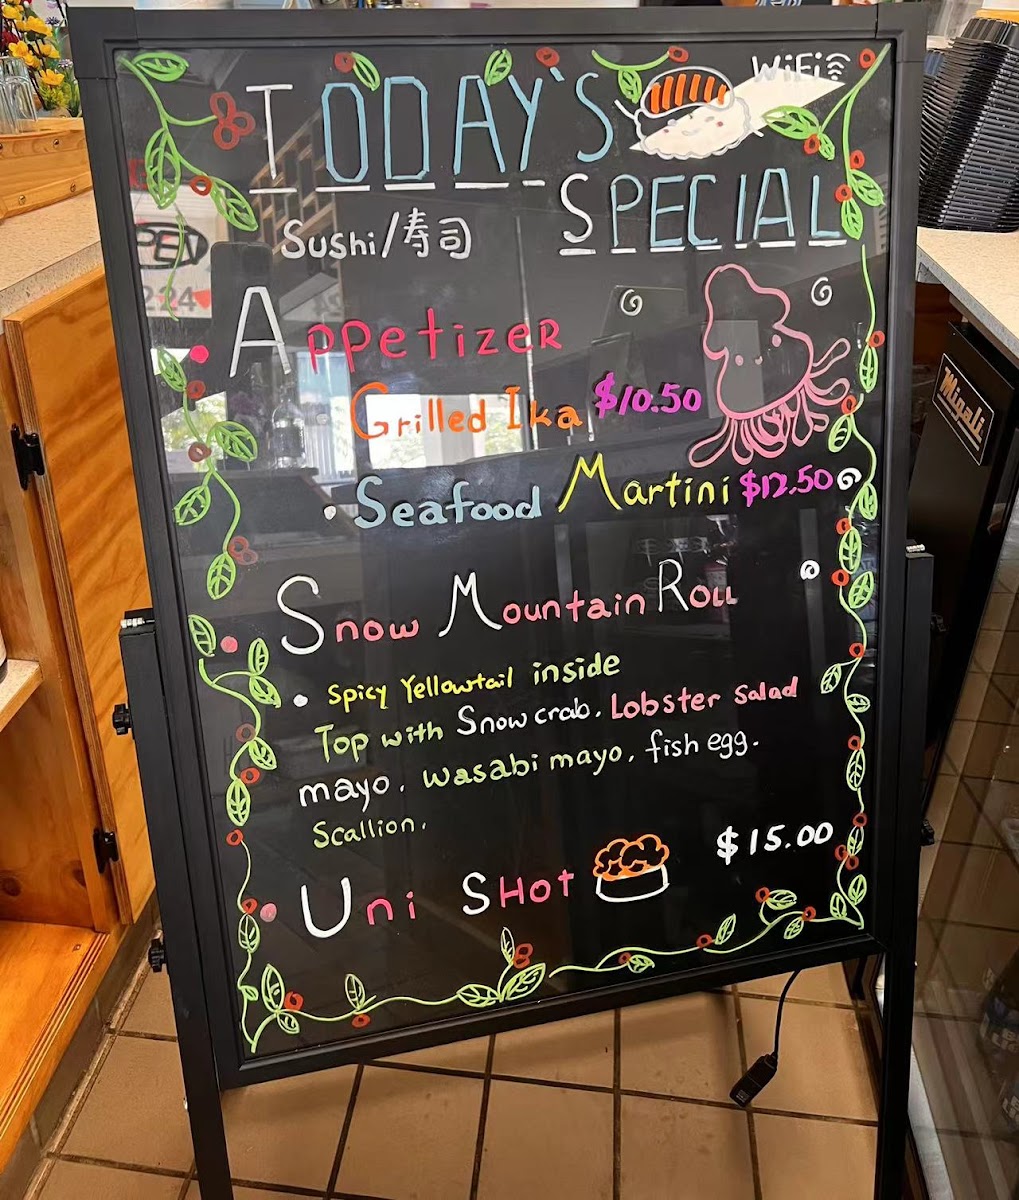 WiFi
TODAY'S
SPECIAL
Sushi/寿司
Appetizer
Grilled Ika $10.50
Seafood Martini $12.50
Snow Mountain Roll
Spicy Yellowtail inside
Top with Snowcrab. Lobster Salad
mayo. wasabi mayo. fish egg.
Scallion.
Uni Shot $15.00
PEN
224
Miyali